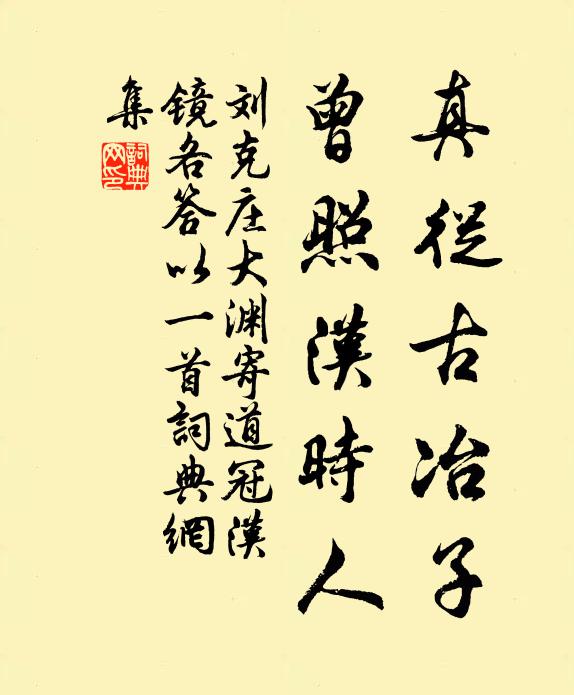 真從古冶子
曾照漢時人
刘克庄大渊寄道冠漢
镜各答以一首詞典網
集
詞典
网印